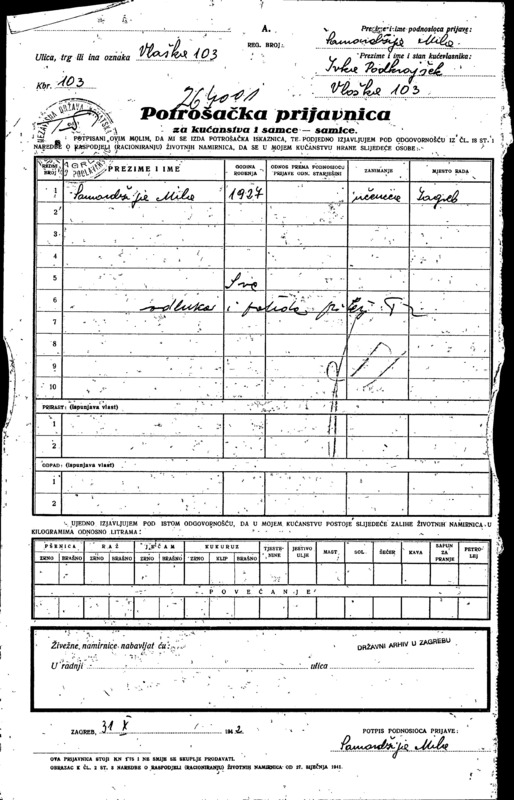 A.
Ulica, trg ili ina oznaka Vlaška 103
REG. BROJ:
Prezime i ime podnosioca prijave:
Samardžija Mile
Kbr. 103
Prezime i ime i stan kućevlasnika:
Podkrajšek
Vlaška 103
Potrošačka prijavnica
za kućanstva i samce — samice.
POTPISANI OVIM MOLIM, DA MI SE IZDA POTROŠAČKA ISKAZNICA, TE PODJEDNO IZJAVLJUJEM POD ODGOVORNOŠĆU IZ ČL. 18 ST. 1
NAREDBE O RASPODJELI (RACIONIRANJU) ŽIVOTNIH NAMIRNICA, DA SE U MOJEM KUĆANSTVU HRANE SLIJEDEĆE OSOBE:
REDNI BROJ PREZIME I IME GODINA ROĐENJA ODNOS PREMA PODNOSIOCU PRIJAVE ODN. STARJEŠINI ZANIMANJE MJESTO RADA
1 Samardžija Mile 1927 Zagreb
2
3
4
5
6
7
8
9
10
PRIRAST: (ispunjava vlast)
1
2
ODPAD: (ispunjava vlast)
1
2
UJEDNO IZJAVLJUJEM POD ISTOM ODGOVORNOŠĆU, DA U MOJEM KUĆANSTVU POSTOJE SLIJEDEĆE ZALIHE ŽIVOTNIH NAMIRNICA U
KILOGRAMIMA ODNOSNO LITRAMA:
PŠENICA RAŽ JEČAM KUKURUZ TJESTENINE JESTIVO ULJE MAST SOL ŠEĆER KAVA SAPUN ZA PRANJE PETROLEJ
ZRNO BRAŠNO ZRNO BRAŠNO ZRNO BRAŠNO ZRNO KLIP BRAŠNO
POVEĆANJE
Živežne namirnice nabavljat ću:
DRŽAVNI ARHIV U ZAGREBU
U radnji ulica
ZAGREB, 31 X 1942
POTPIS PODNOSIOCA PRIJAVE:
Samardžija Mile
OVA PRIJAVNICA STOJI KN 1·75 I NE SMIJE SE SKUPLJE PRODAVATI.
OBRAZAC K ČL. 2 ST. 3 NAREDBE O RASPODJELI (RACIONIRANJU) ŽIVOTNIH NAMIRNICA OD 27. SIJEČNJA 1941.